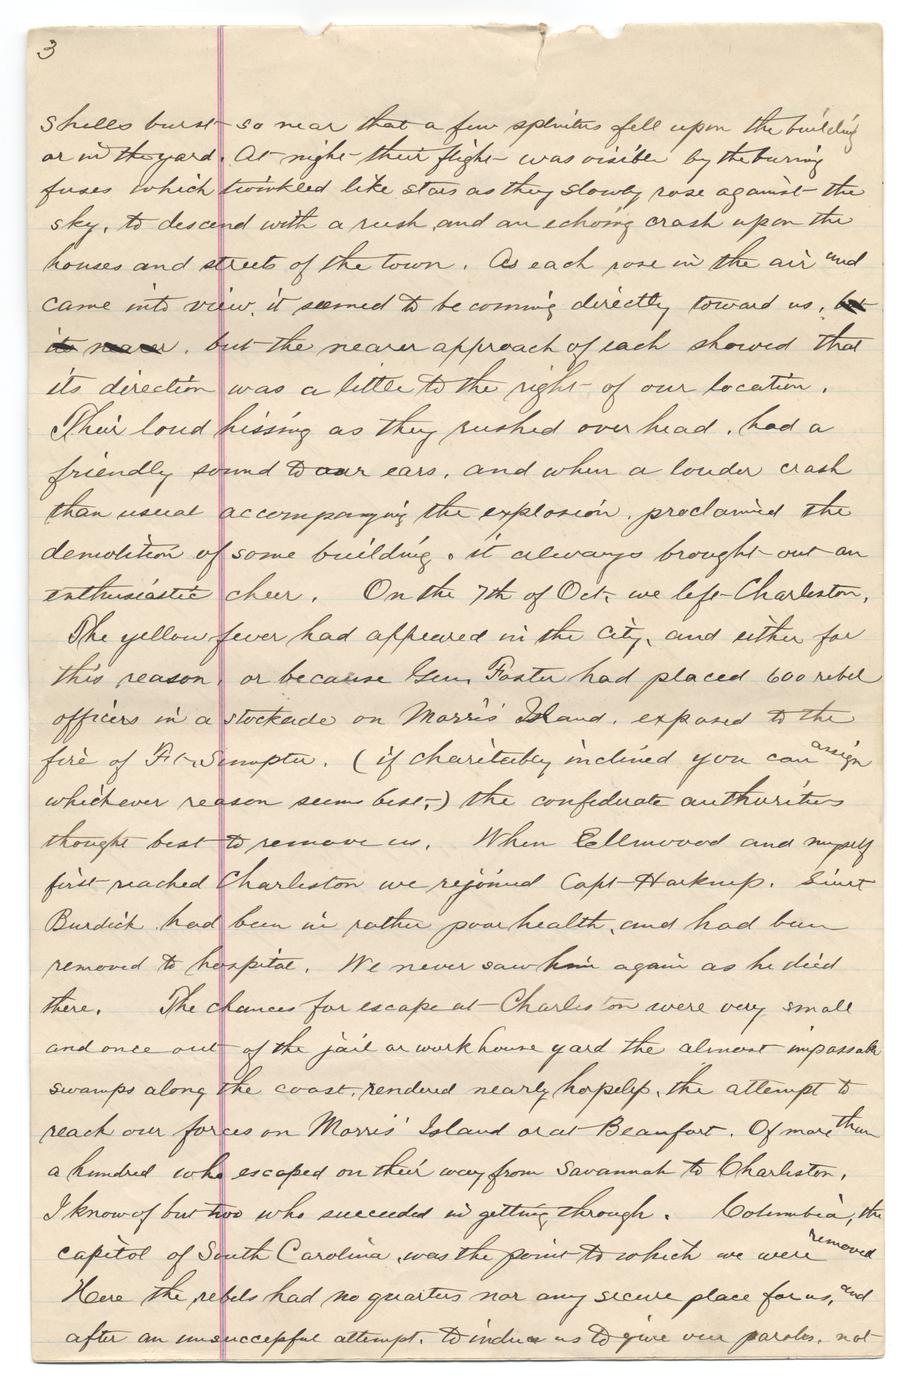 3
shells burst so near that a few splinters fell upon the building
or in the yard. At night their flight was visible by the burning
fuses which twinkled like stars as they slowly rose against the
sky, to descend with a rush and an echoing crash upon the
houses and streets of the town. As each rose in the air and
came into view, it seemed to be coming directly toward us, but
its nearer, but the nearer approach of each showed that
its direction was a little to the right of our location.
Their loud hissing as they rushed over head, had a
friendly sound to our ears, and when a louder crash
than usual accompanying the explosion, proclaimed the
demolition of some building, it always brought out an
enthusiastic cheer. On the 7th of Oct. we left Charleston.
The yellow fever had appeared in the city, and either for
this reason, or because Gen. Foster had placed 600 rebel
officers in a stockade on Morris' Island, exposed to the
fire of Ft. Sumpter. (if charitably inclined you can assign
whichever reason seems best,) the confederate authorities
thought best to remove us. When Ellmwood and myself
first reached Charleston we rejoined Capt Harknep. Lieut
Burdick had been in rather poor health, and had been
removed to hospital. We never saw him again as he died
there. The chances for escape at Charleston were very small
and once out of the jail or workhouse yard the almost impassable
swamps along the coast, rendered nearly hopeless, the attempt to
reach our forces on Morris' Island or at Beaufort. Of more than
a hundred who escaped on their way from Savannah to Charleston,
I know of but two who succeeded in getting through. Columbia, the
capitol of South Carolina, was the point to which we were removed
Here the rebels had no quarters nor any secure place for us, and
after an unsuccessful attempt, to induce us to give our paroles, not